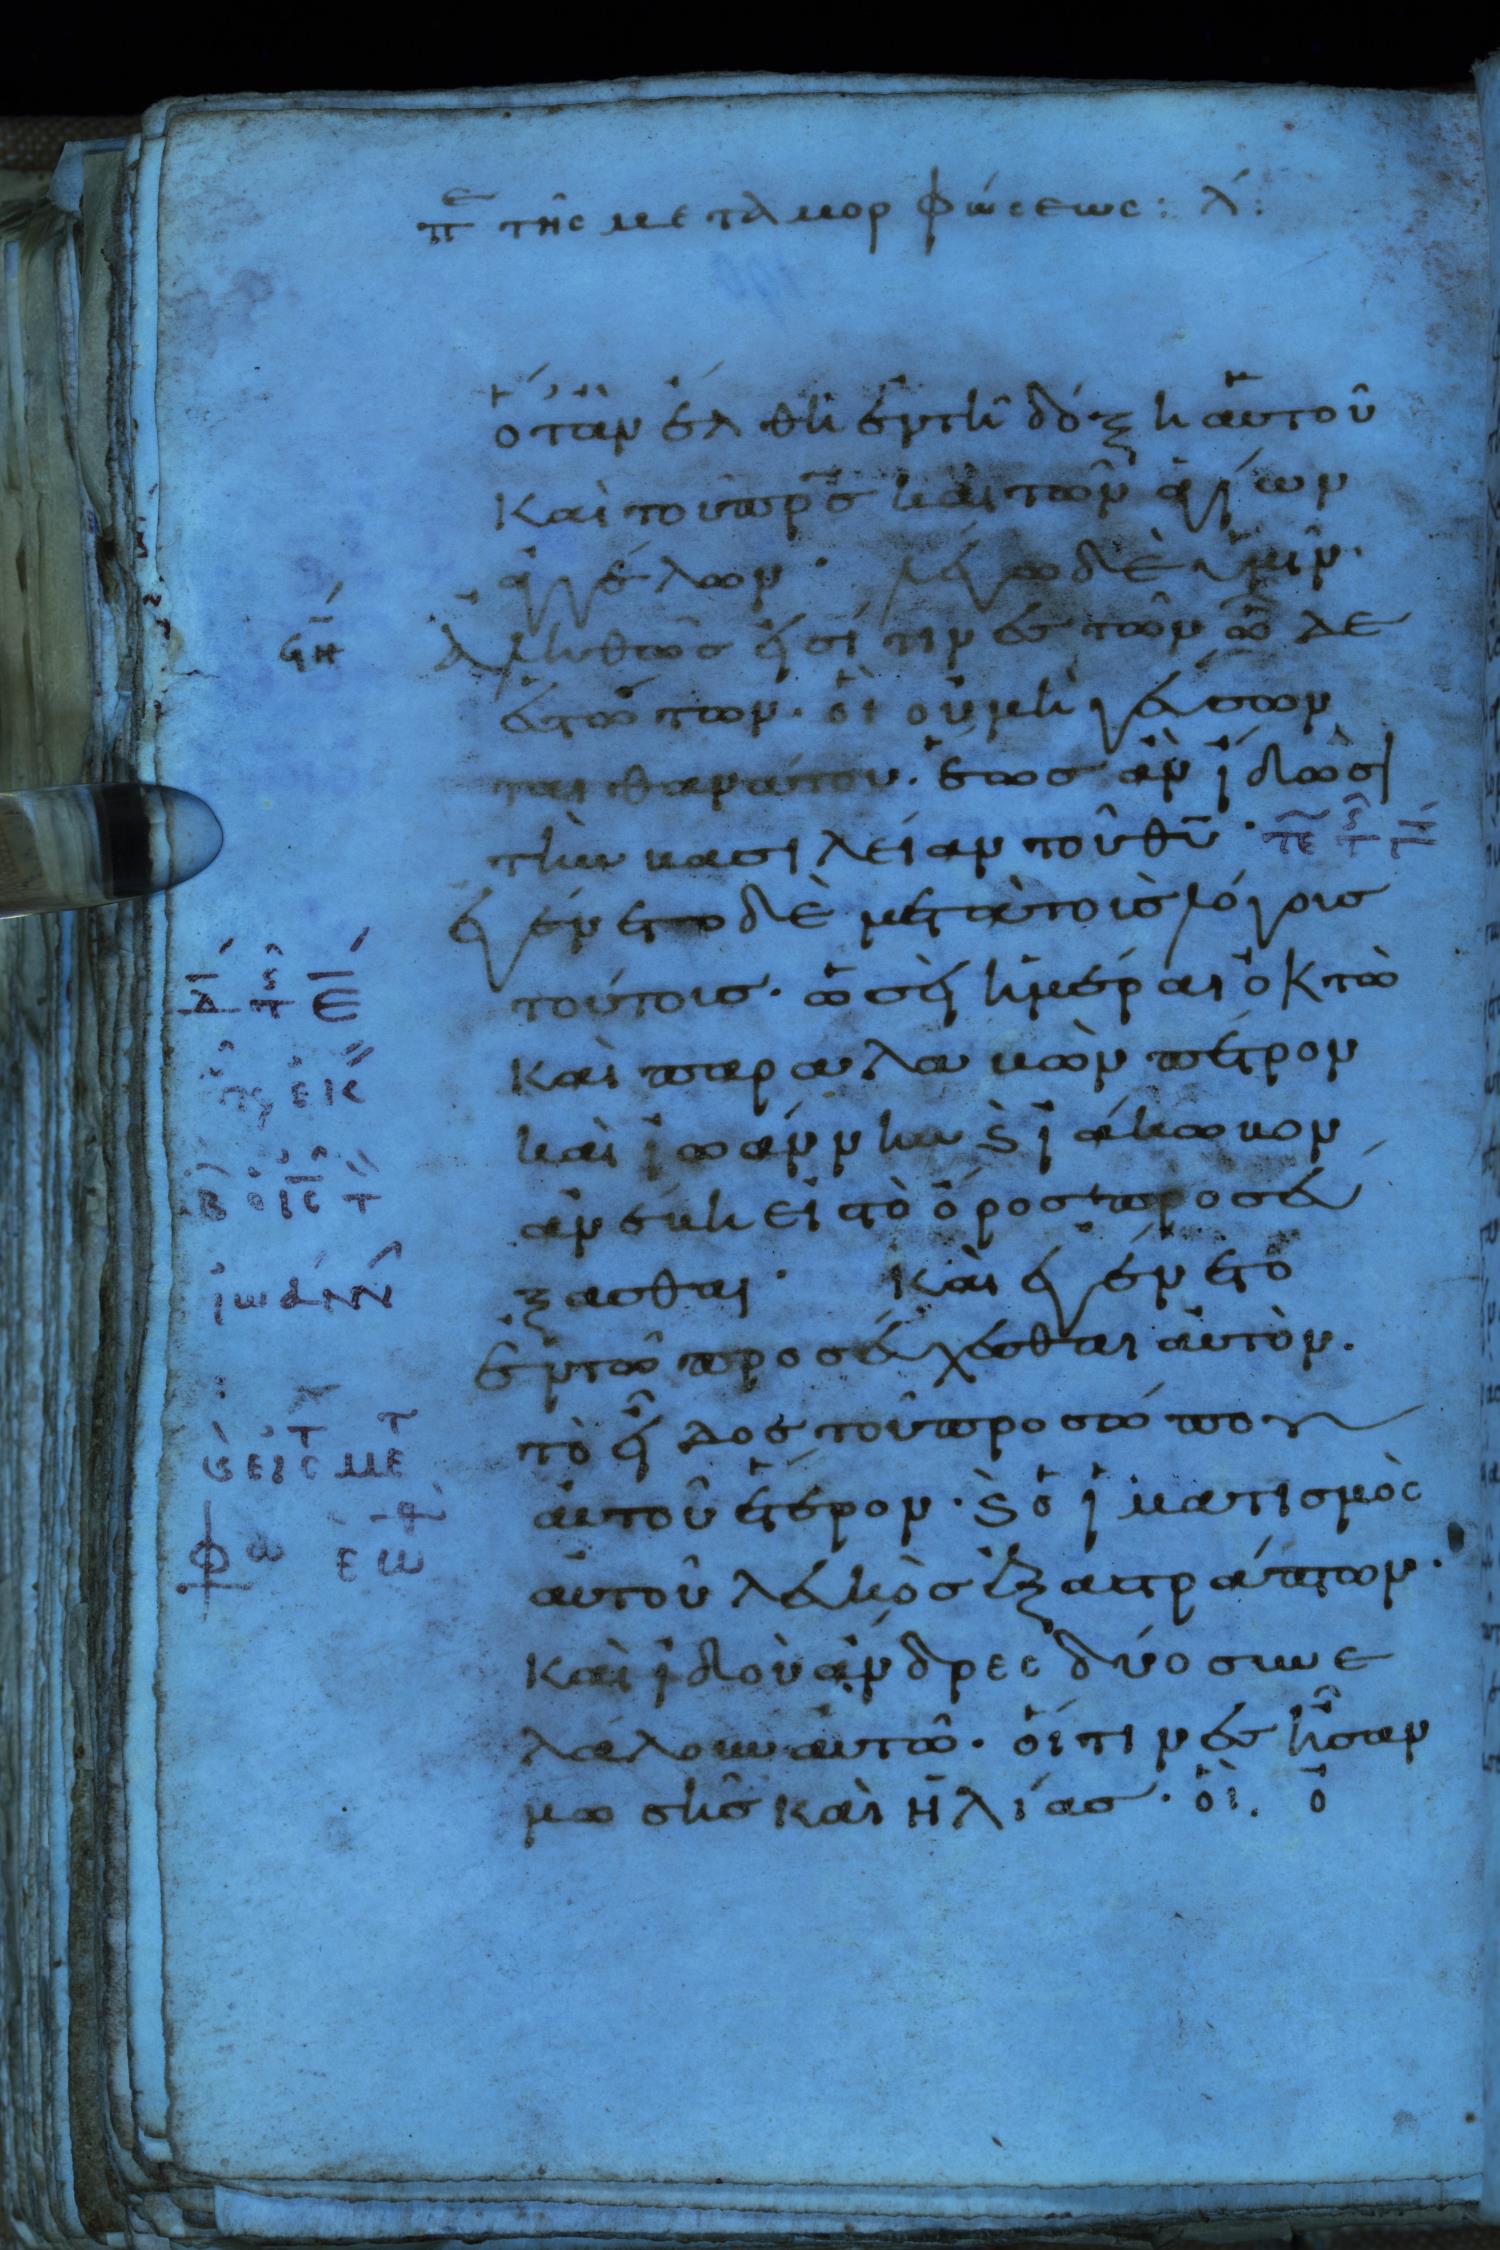 πε της μεταμορφώσεως: λ:
ὅταν ἔλθη ἐν τῆ δόξη αὐτοῦ
καὶ τοῦ πρς καὶ τῶν ἁγίων
ἀγγέλων· λέγω δὲ ὑμῖν·
ϛη ἀληθῶς εἰσί τινες τῶν ὧδε
ἑστώτων· οἳ οὐ μὴ γεύσων
ται θανάτου· ἕως ἂν ἴδωσι
τὴν βασιλείαν τοῦ θυ·
ἐγένετο δὲ μετὰ τοὺς λόγους
τούτους· ὡσεὶ ἡμέραι ὀκτὼ
καὶ παραλαβὼν πέτρον
καὶ ἰωάννην ϛ ἰάκωβον
ἀνέβη εἰ τὸ ὄρος προσεύ
ξασθαι· Καὶ ἐγένετο
ἐν τῶ προσεύχεσθαι αὐτὸν·
τὸ εἶδος τοῦ προσώπου
αὐτοῦ ἕτερον· ϛ ὁ ἱματισμὸς
αὐτοῦ λευκὸς ἐξαστράπτων·
Καὶ ἰδοὺ ἄνδρες δύο συνε
λάλουν αὐτῶ· οἵτινες ἦσαν
μωσῆς καὶ ἠλίας· οἳ. ὁ
ἰωάνν
εἰς τ με τ
φω εω